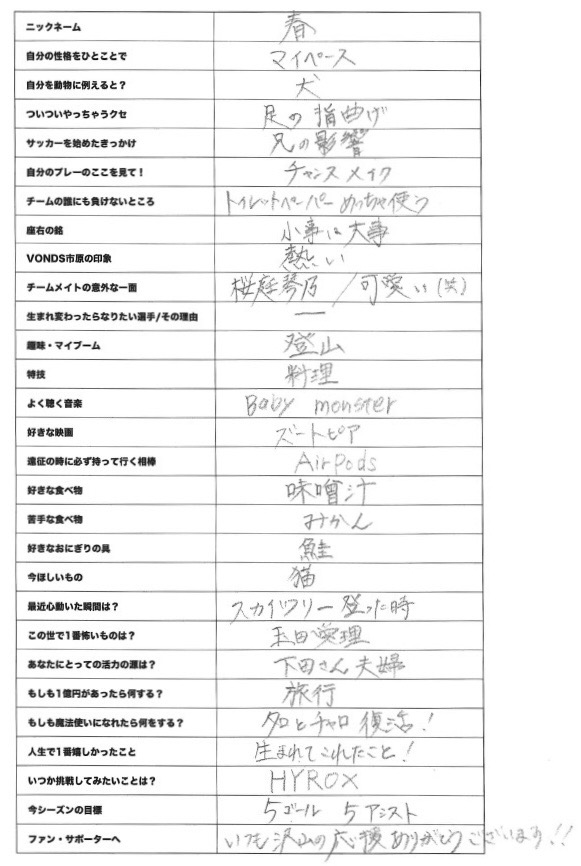 ニックネーム 春
自分の性格をひとことで マイペース
自分を動物に例えると？ 犬
ついついやっちゃうクセ 足の指曲げ
サッカーを始めたきっかけ 兄の影響
自分のプレーのここを見て！ チャンスメイク
チームの誰にも負けないところ トイレットペーパーめっちゃ使う
座右の銘 小事は大事
VONDS市原の印象 熱い
チームメイトの意外な一面 桜庭琴乃／可愛い（笑）
生まれ変わったらなりたい選手/その理由 ー
趣味・マイブーム 登山
特技 料理
よく聴く音楽 Baby monster
好きな映画 ズートピア
遠征の時に必ず持って行く相棒 AirPods
好きな食べ物 味噌汁
苦手な食べ物 みかん
好きなおにぎりの具 鮭
今ほしいもの 猫
最近心動いた瞬間は？ スカイツリー登った時
この世で1番怖いものは？ 玉田愛理
あなたにとっての活力の源は？ 下田さん夫婦
もしも1億円があったら何する？ 旅行
もしも魔法使いになれたら何をする？ タロとチャロ復活！
人生で1番嬉しかったこと 生まれてこれたこと！
いつか挑戦してみたいことは？ HYROX
今シーズンの目標 5ゴール 5アシスト
ファン・サポーターへ いつも沢山の応援ありがとうございます!!